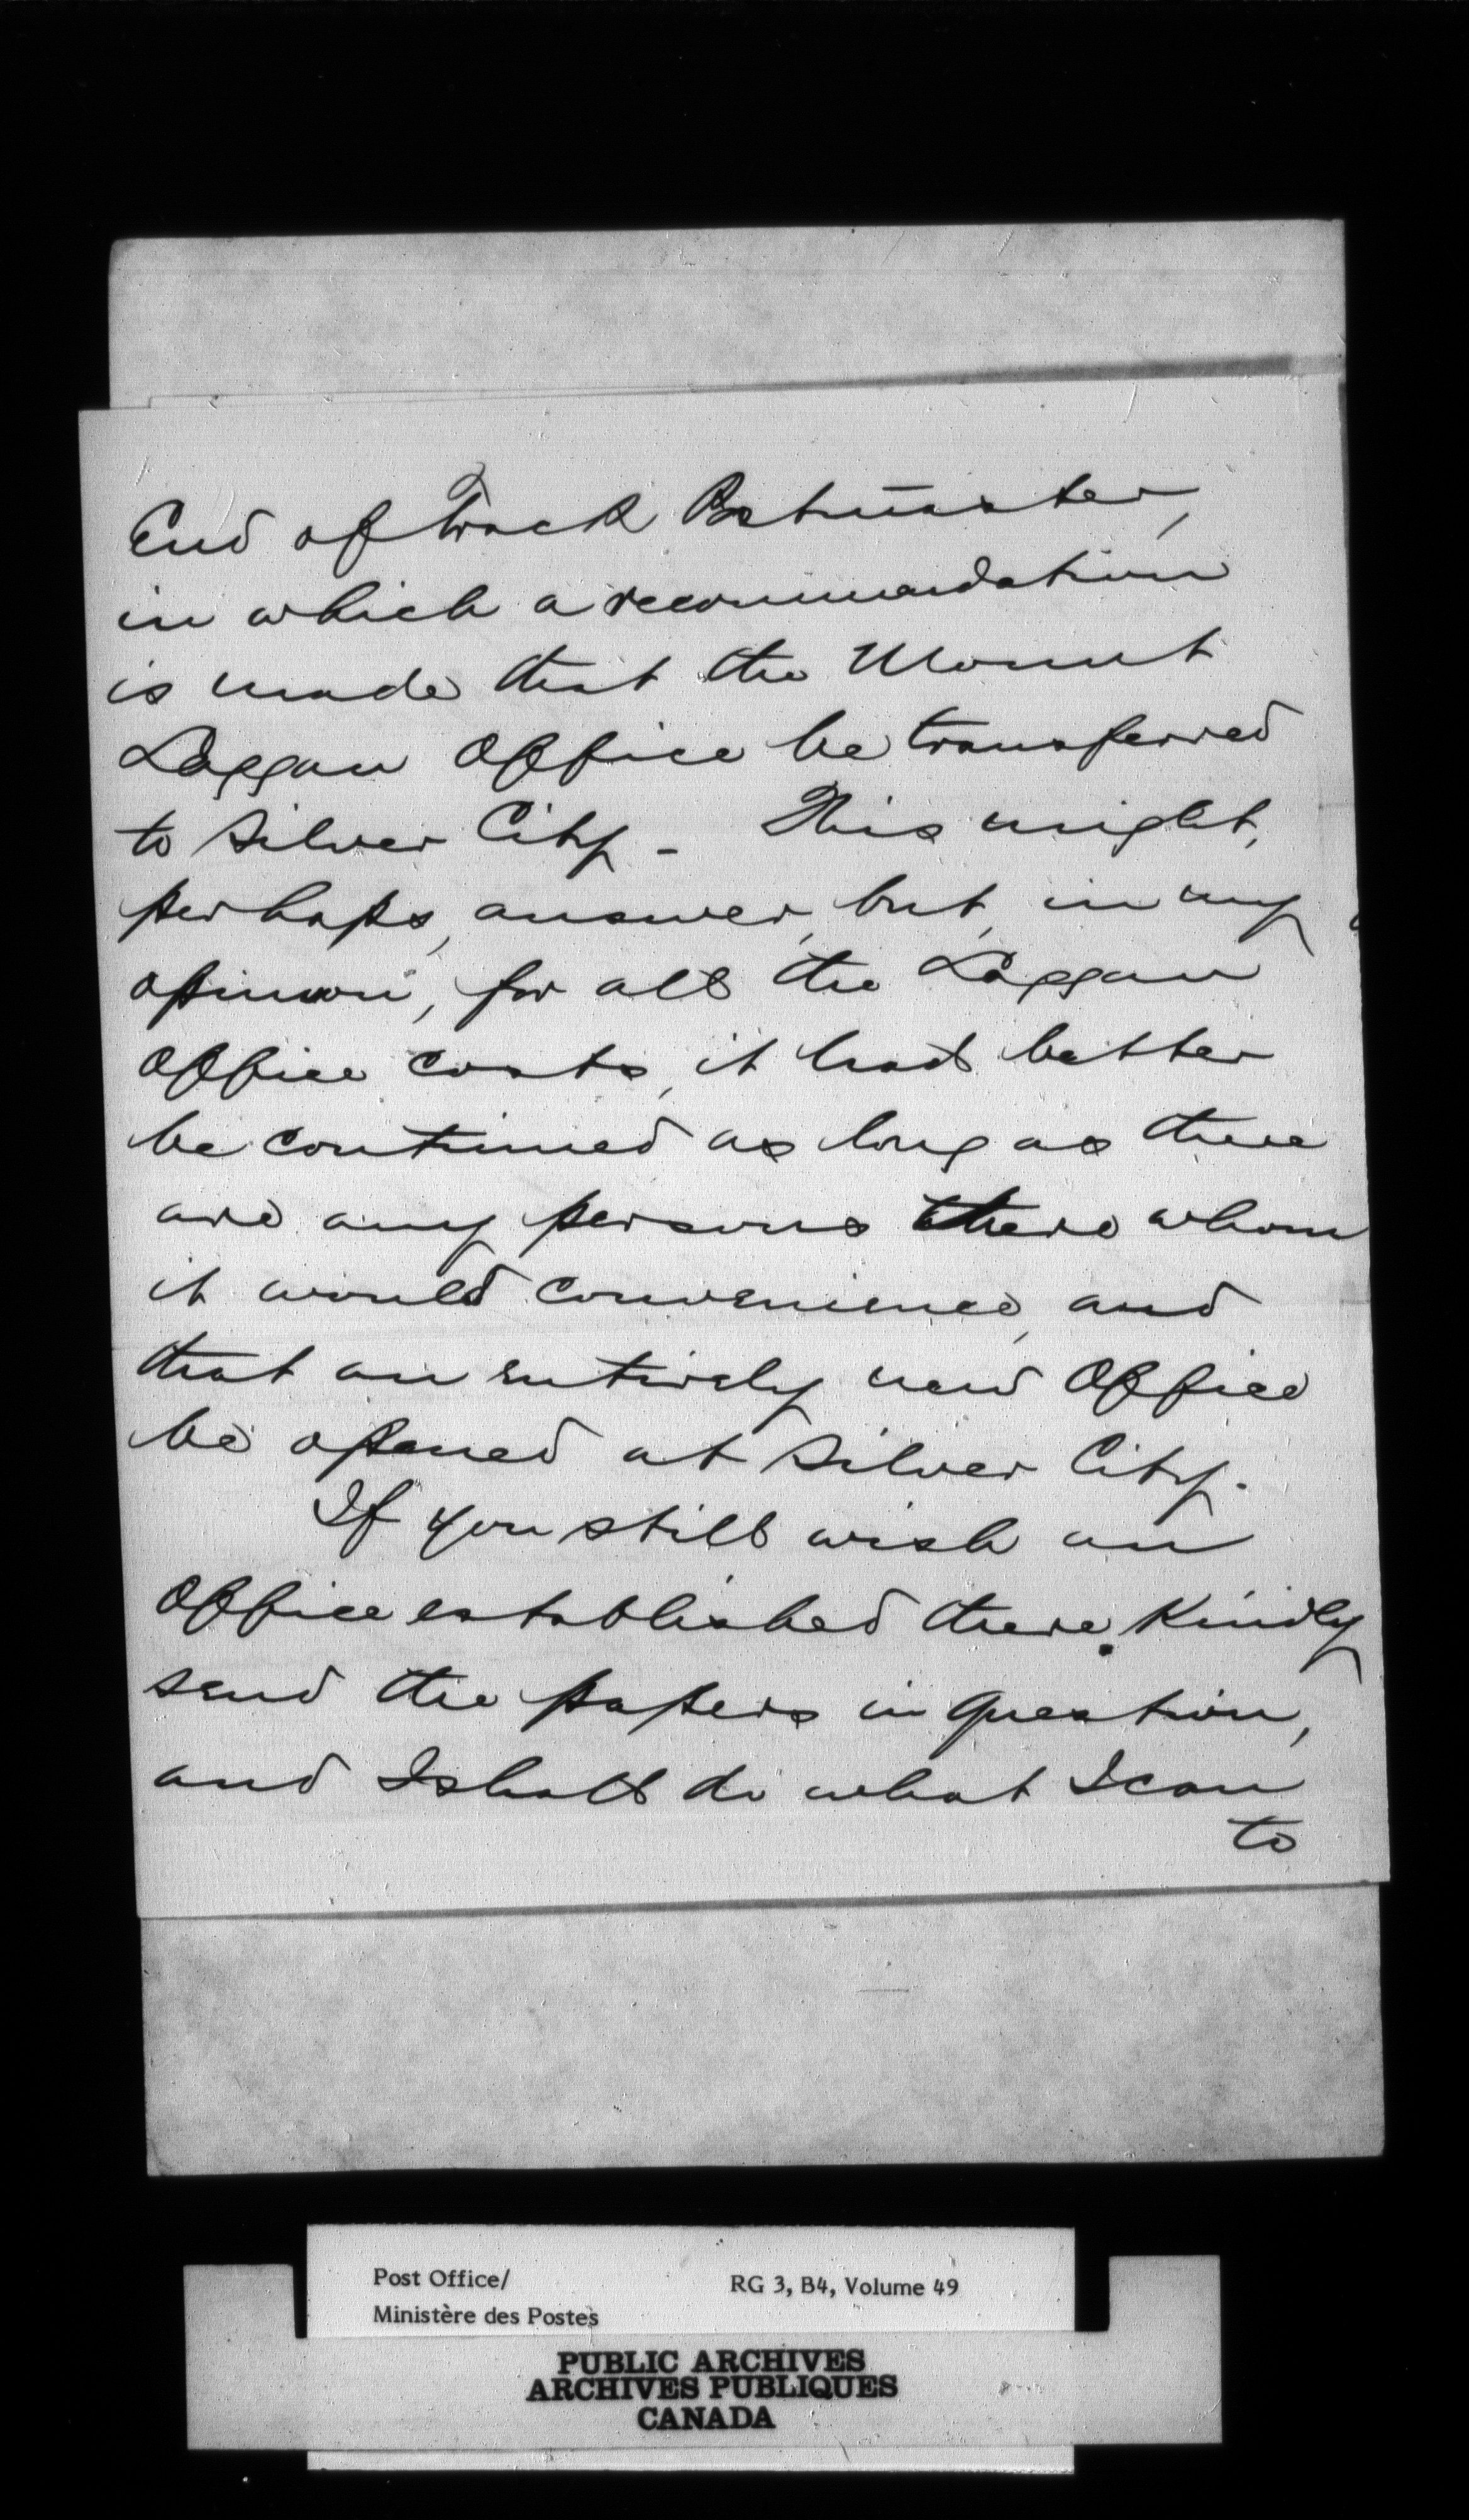 End of Track Postmaster,
in which a recommendation
is made that the Mount
Laggan Office be transferred
to Silver City - This might,
perhaps, answer, but, in my
opinion, for all the Laggan
Office costs, it had better
be continued as long as there
are any persons there whom
it would convenience, and
that an entirely new Office
be opened at Silver City.
If you still wish an
Office established there, kindly
send the papers in question,
and I shall do what I can
to
Post Office/ RG 3, B4, Volume 49
Ministère des Postes
PUBLIC ARCHIVES
ARCHIVES PUBLIQUES
CANADA